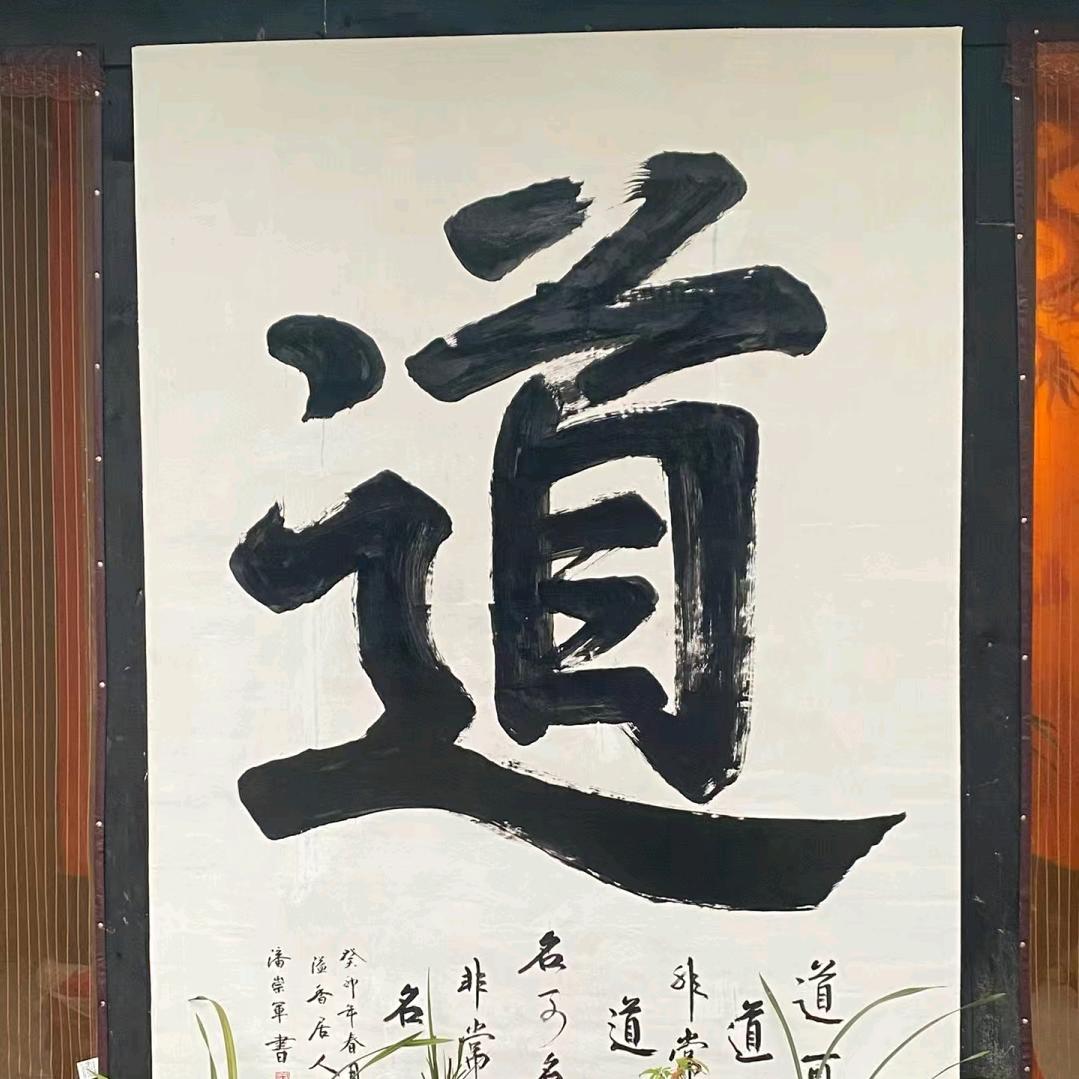 道
道可
道
非常
道
名可名
非常
名
癸卯年春月
溢香居人
潘崇军書